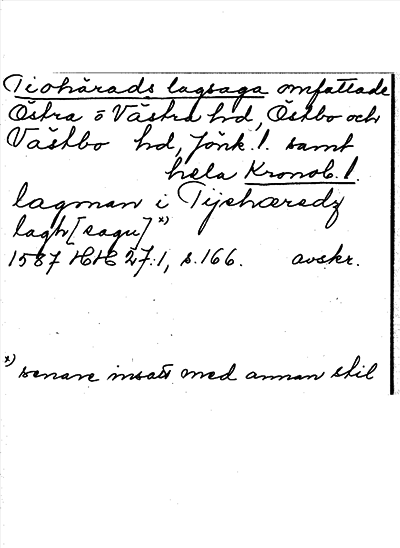 Tiohärads lagsaga omfattade
Östra o Västra hd, Östbo och
Västbo hd, Jönk. l. samt
hela Kronob. l.
lagman i Tijehæredz
lagh[sagu] x)
1587 HH 27:1, s. 166. avskr.
x) senare insatt med annan stil